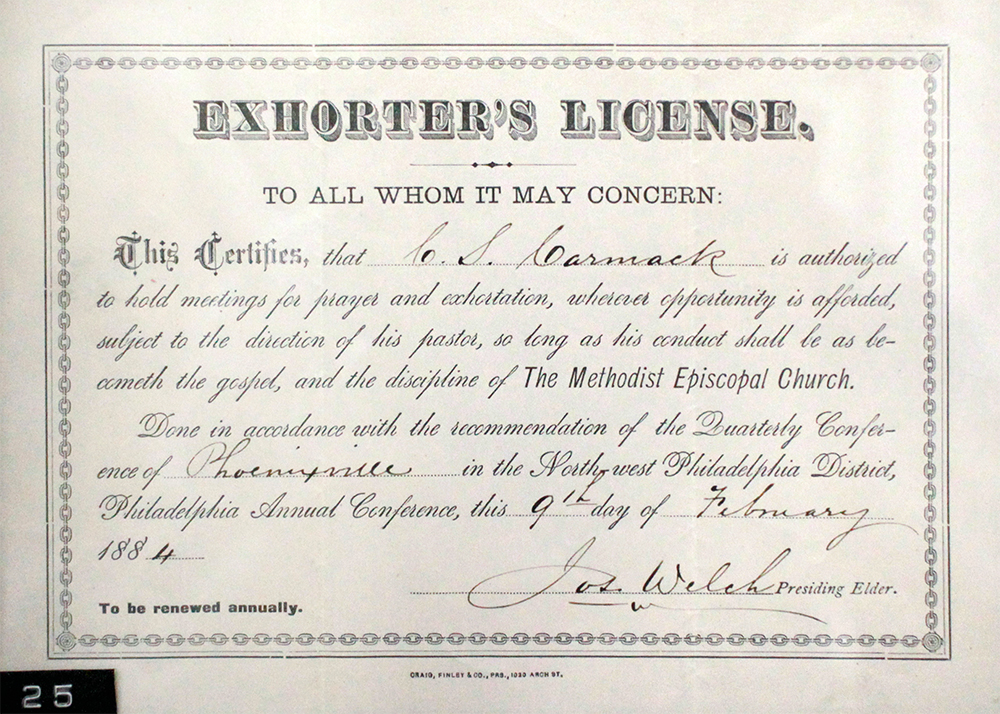 EXHORTER'S LICENSE.
TO ALL WHOM IT MAY CONCERN:
This Certifies, that C. S. Cormack is authorized
to hold meetings for prayer and exhortation, wherever opportunity is afforded,
subject to the direction of his pastor, so long as his conduct shall be as be-
cometh the gospel, and the discipline of The Methodist Episcopal Church.
Done in accordance with the recommendation of the Quarterly Confer-
ence of Phoenixville in the North-west Philadelphia District,
Philadelphia Annual Conference, this 9th day of February
1884
Jos. Welch Presiding Elder.
To be renewed annually.
CRAIG, FINLEY & CO., PRS., 1020 ARCH ST.
25